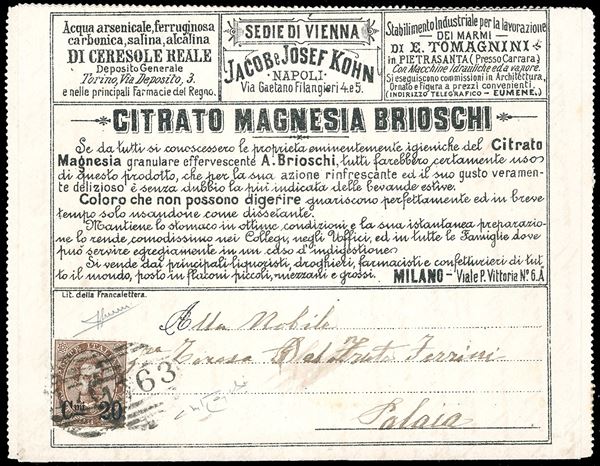 Acqua arsenicale, ferruginosa
carbonica, salina, alcalina
DI CERESOLE REALE
Deposito Generale
Torino, Via Deposito, 3.
e nelle principali Farmacie del Regno.
SEDIE DI VIENNA
JACOB e JOSEF KOHN
NAPOLI
Via Gaetano Filangieri 4. e 5.
Stabilimento Industriale per la lavorazione
DEI MARMI
DI E. TOMAGNINI
in PIETRASANTA (Presso Carrara)
Con Macchine Idrauliche ed a vapore.
Si eseguiscono commissioni in Architettura,
Ornato e Figura a prezzi convenienti.
(INDIRIZZO TELEGRAFICO - EUMENE.)
CITRATO MAGNESIA BRIOSCHI
Se da tutti si conoscessero le proprietà eminentemente igieniche del Citrato
Magnesia granulare effervescente A. Brioschi, tutti farebbero certamente uso
di questo prodotto, che per la sua azione rinfrescante ed il suo gusto veramen-
te delizioso è senza dubbio la più indicata delle bevande estive.
Coloro che non possono digerire guariscono perfettamente ed in breve
tempo solo usandone come dissetante.
Mantiene lo stomaco in ottime condizioni e la sua istantanea preparazio-
ne lo rende comodissimo nei Collegi, negli Uffici, ed in tutte le Famiglie dove
può servire egregiamente in un caso d'indigestione.
Si vende dai principali liquoristi, droghieri, farmacisti e confetturieri di tut-
to il mondo, posto in flaconi piccoli, mezzani e grossi. MILANO - Viale P. Vittoria Nº 6. A
Lit. della Francalettera.
Alla Nobile
Teresa Ferrini
Palaia
63
Cmi. 20